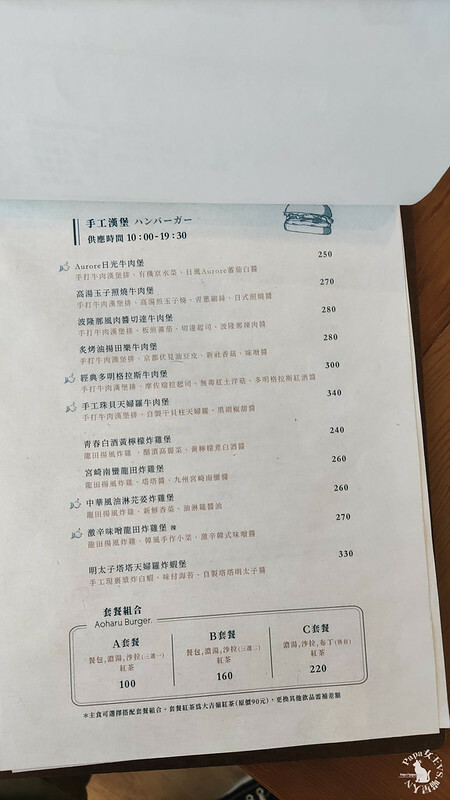 手工漢堡 ハンバーガー
供應時間 10:00-19:30
Aurore日光牛肉堡 250
手打牛肉漢堡排、有機京水菜、日風Aurore蕃茄白醬
高湯玉子照燒牛肉堡 270
手打牛肉漢堡排、高湯煎玉子燒、青蔥細絲、日式照燒醬
波隆那風肉醬切達牛肉堡 280
手打牛肉漢堡排、板煎蕃茄、切達起司、波隆那辣肉醬
炙烤油揚田樂牛肉堡 280
手打牛肉漢堡排、京都伏見油豆皮、新社香菇、味噌醬
經典多明格拉斯牛肉堡 300
手打牛肉漢堡排、摩佐瑞拉起司、無毒紅土洋菇、多明格拉斯紅酒醬
手工珠貝天婦羅牛肉堡 340
手打牛肉漢堡排、自製干貝柱天婦羅、黑胡椒甜醬
青春白酒黃檸檬炸雞堡 240
龍田揚風炸雞、醋漬高麗菜、黃檸檬煮白酒醬
宮崎南蠻龍田炸雞堡 260
龍田揚風炸雞、塔塔醬、九州宮崎南蠻醬
中華風油淋芫荽炸雞堡 260
龍田揚風炸雞、新鮮香菜、油淋雞醬油
激辛味噌龍田炸雞堡 辣 270
龍田揚風炸雞、韓風手作小菜、激辛韓式味噌醬
明太子塔塔天婦羅炸蝦堡 330
手工現裹漿炸白蝦、味付海苔、自製塔塔明太子醬
套餐組合
Aoharu Burger.
A套餐
餐包,濃湯,沙拉(三選一)
紅茶
100
B套餐
餐包,濃湯,沙拉(三選二)
紅茶
160
C套餐
濃湯,沙拉,布丁
紅茶
220
*主食可選擇搭配套餐組合。套餐紅茶為大吉嶺紅茶(原價90元)，更換其他飲品需補差額